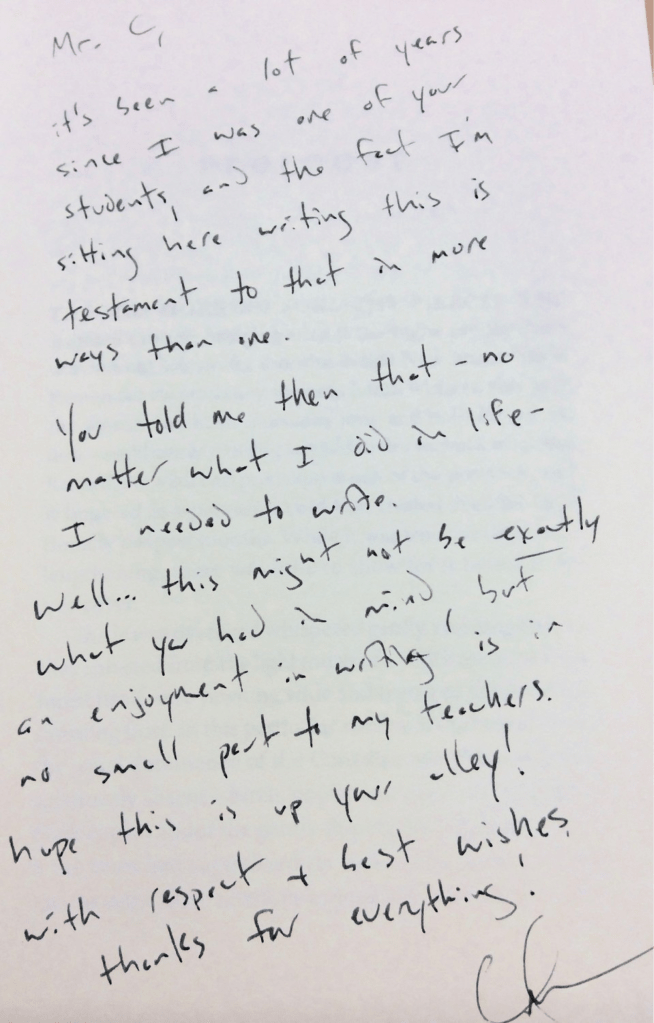 Mr. C,
it's been a lot of years
since I was one of your
students, and the fact I'm
sitting here writing this is
testament to that in more
ways than one.
You told me then that - no
matter what I did in life -
I needed to write.
Well... this might not be exactly
what you had in mind, but
an enjoyment in writing is in
no small part to my teachers.
hope this is up your alley!
with respect + best wishes,
thanks for everything!